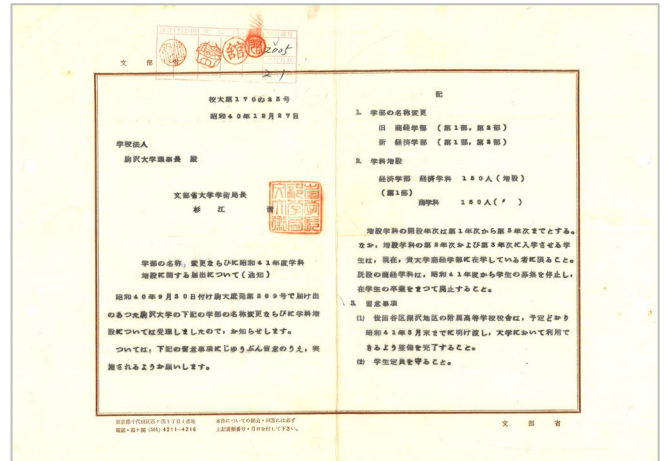 文部省
2005
校大第170の23号
昭和40年12月27日
学校法人
駒沢大学理事長 殿
文部省大学学術局長
杉江 清
学部の名称、変更ならびに昭和41年度学科
増設に関する届出について（通知）
昭和40年9月30日付け駒大庶発第289号で届け出
のあつた駒沢大学の下記の学部の名称変更ならびに学科増
設については受理しましたので、お知らせします。
ついては、下記の留意事項にじゆうぶん留意のうえ、実
施されるようお願いします。
東京都千代田区霞ヶ関3丁目4番地
電話・霞ヶ関(581) 4211-4216
本件についての照会・回答には必ず
上記書類番号・月日を付して下さい。
記
1. 学部の名称変更
旧 商経学部 （第1部，第2部）
新 経済学部 （第1部，第2部）
2. 学科増設
経済学部 経済学科 150人（増設）
（第1部）
商学科 150人（〃）
増設学科の開設年次は第1年次から第3年次までとする。
なお，増設学科の第2年次および第3年次に入学させる学
生は，現在，貴大学商経学部に在学している者に限ること。
既設の商経学科は，昭和41年度から学生の募集を停止し，
在学生の卒業をまつて廃止すること。
3. 留意事項
(1) 世田谷区深沢地区の附属高等学校校舎は，予定どおり
昭和41年3月末までに明け渡し，大学において利用で
きるよう整備を完了すること。
(2) 学生定員を守ること。
文部省